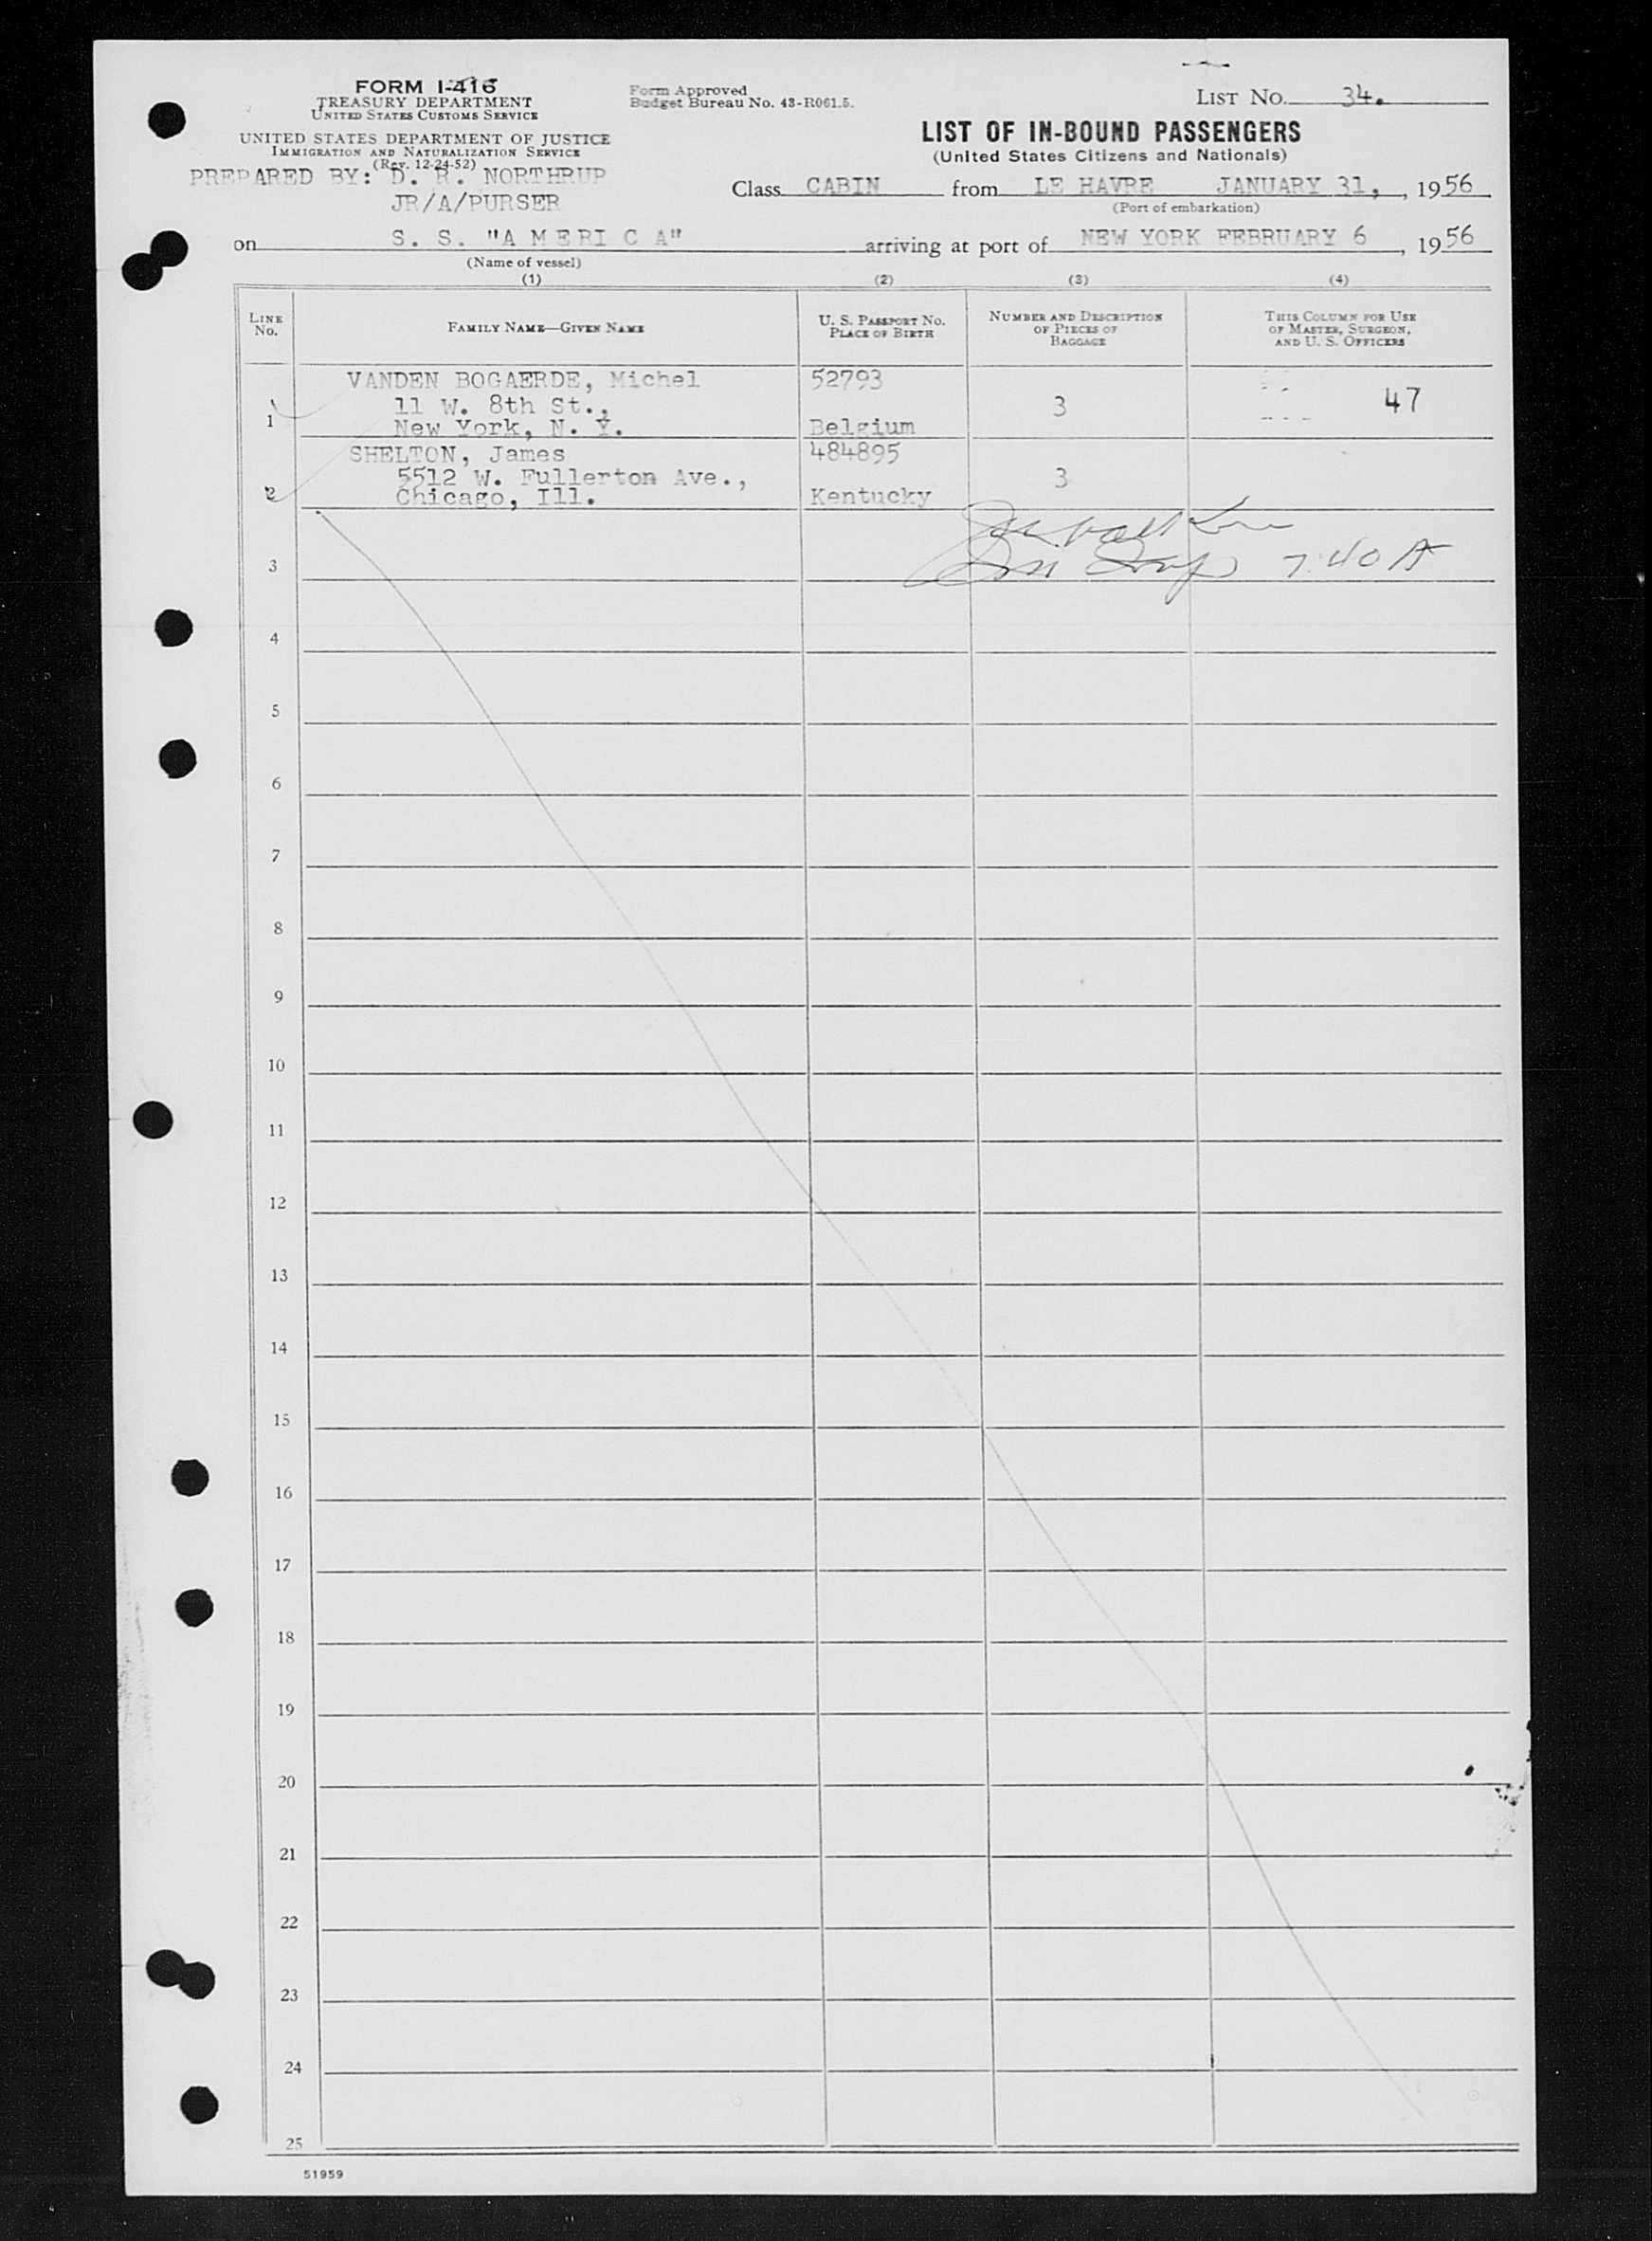 FORM I-416
TREASURY DEPARTMENT
UNITED STATES CUSTOMS SERVICE
UNITED STATES DEPARTMENT OF JUSTICE
IMMIGRATION AND NATURALIZATION SERVICE
(Rev. 12-24-52)
PREPARED BY: D. R. NORTHRUP
JR/A/PURSER
Form Approved
Budget Bureau No. 43-R061.5.
LIST NO. 34.
LIST OF IN-BOUND PASSENGERS
(United States Citizens and Nationals)
Class CABIN from LE HAVRE JANUARY 31, , 1956
(Port of embarkation)
on S. S. "A M E R I C A" arriving at port of NEW YORK FEBRUARY 6 , 1956
(Name of vessel)
(1) (2) (3) (4)
LINE No.
FAMILY NAME—GIVEN NAME
U. S. PASSPORT NO.
PLACE OF BIRTH
NUMBER AND DESCRIPTION
OF PIECES OF
BAGGAGE
THIS COLUMN FOR USE
OF MASTER, SURGEON,
AND U. S. OFFICERS
VANDEN BOGAERDE, Michel 52793
1 11 W. 8th St., 3 47
New York, N. Y. Belgium
SHELTON, James 484895
5512 W. Fullerton Ave., 3
2 Chicago, Ill. Kentucky
3 7:40 A
4
5
6
7
8
9
10
11
12
13
14
15
16
17
18
19
20
21
22
23
24
25
51959